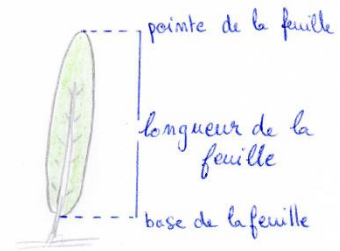 pointe de la feuille
longueur de la
feuille
base de la feuille